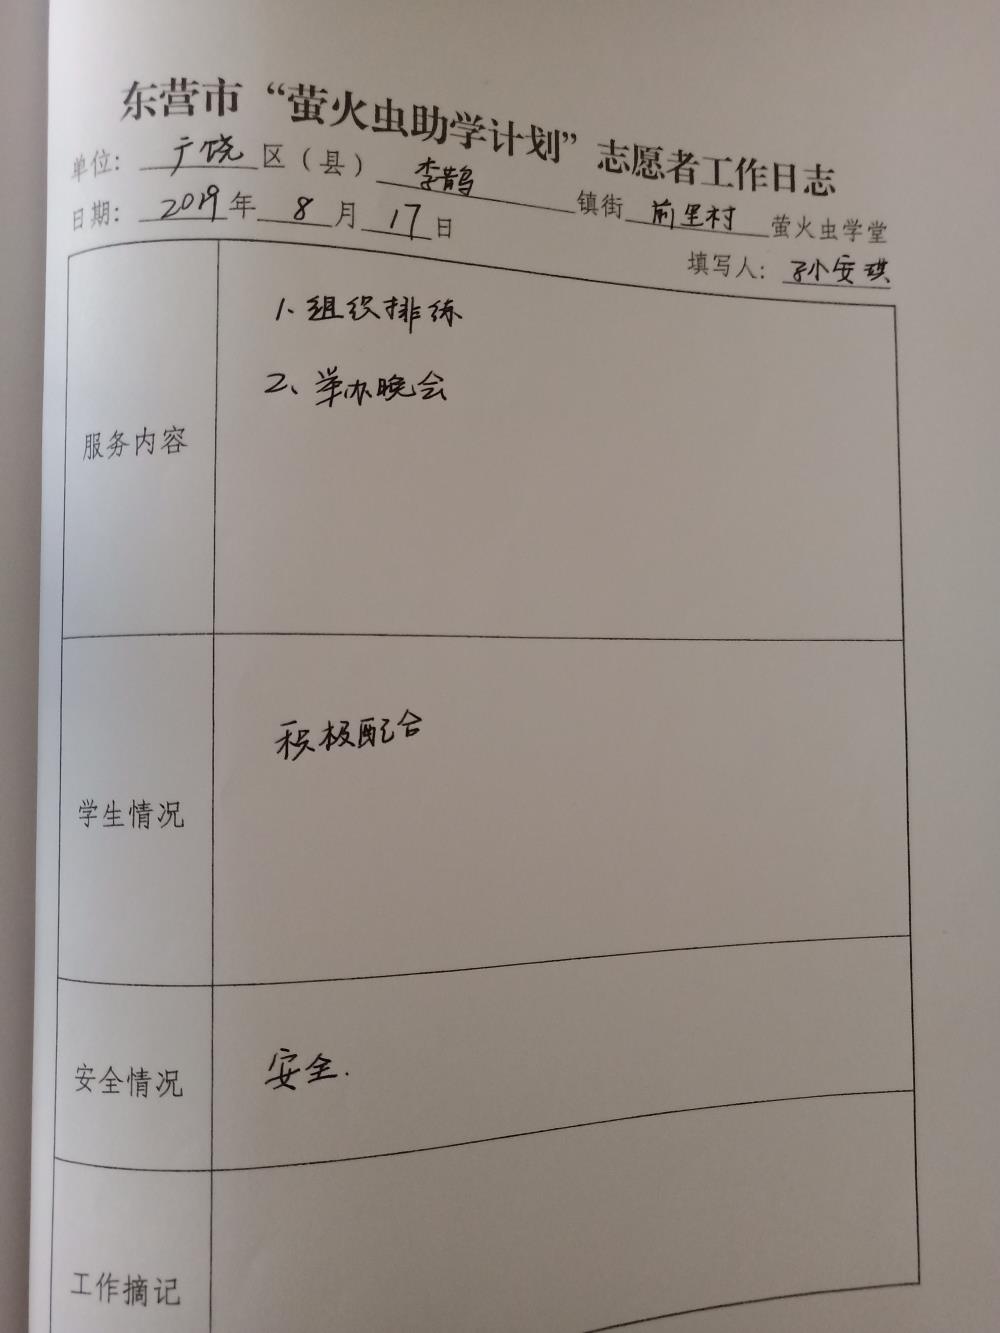 东营市“萤火虫助学计划”志愿者工作日志
单位：广饶区（县）李鹊镇街前屋村萤火虫学堂
日期：2019年8月17日
填写人：孙安琪
服务内容
1、组织排练
2、举办晚会
学生情况
积极配合
安全情况
安全.
工作摘记